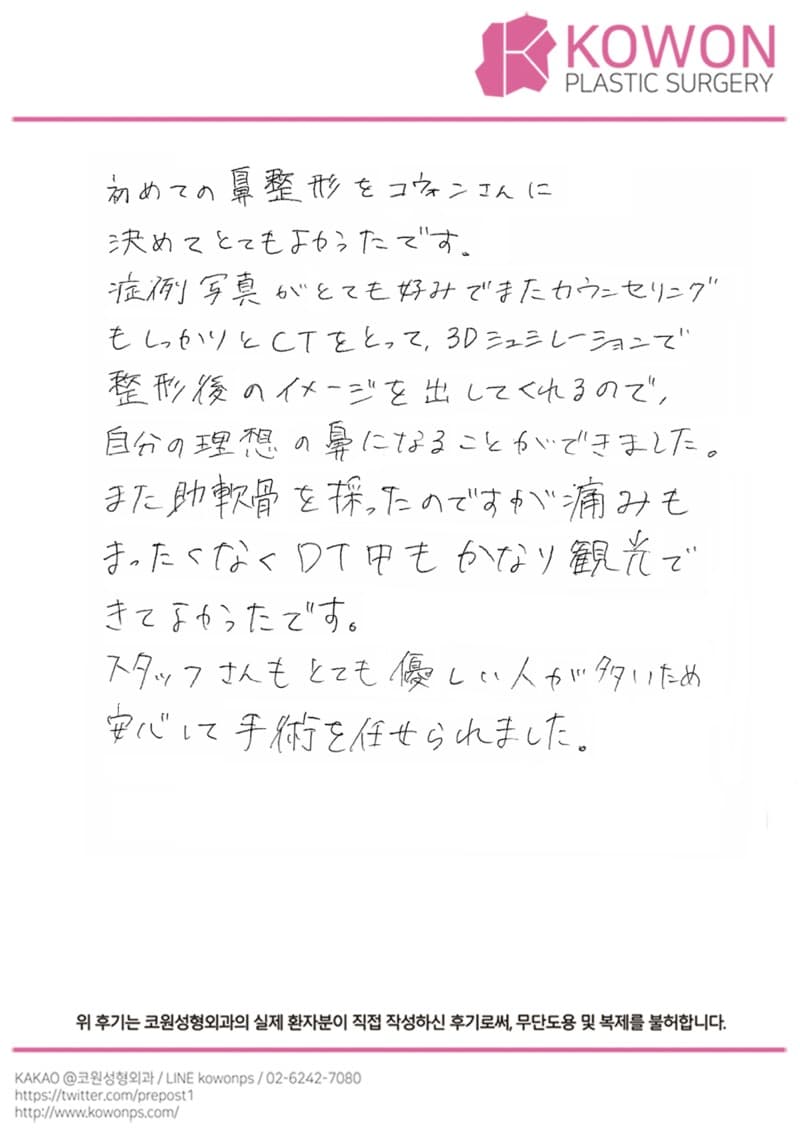 KOWON
PLASTIC SURGERY
初めての鼻整形をコウォンさんに
決めてとてもよかったです。
症例写真がとても好みでまたカウンセリング
もしっかりとCTをとって、3Dシュミレーションで
整形後のイメージを出してくれるので、
自分の理想の鼻になることができました。
また助軟骨を採ったのですが痛みも
まったくなくDT中もかなり観光で
きてよかったです。
スタッフさんもとても優しい人が多いため
安心して手術を任せられました。
위 후기는 코원성형외과의 실제 환자분이 직접 작성하신 후기로써, 무단도용 및 복제를 불허합니다.
KAKAO @코원성형외과 / LINE kowonps / 02-6242-7080
https://twitter.com/prepost1
http://www.kowonps.com/